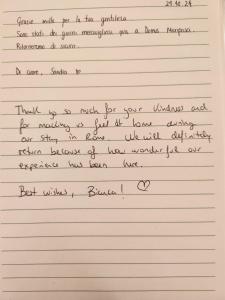 29.10.24
Grazie mille per la tua gentilezza.
Sono stati dei giorni meravigliosi qua a Domus Mariposa.
Ritorneremo di sicuro.
Di cuore, Sandra
Thank you so much for your kindness and
for making us feel at home during
our stay in Rome. We will definitely
return because of how wonderful our
experience has been here.
Best wishes, Bianca! ♡